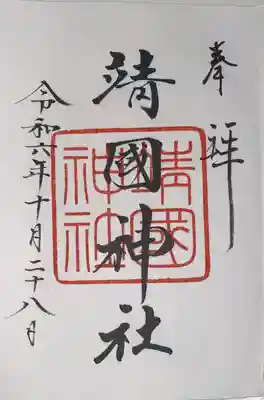 奉拝
靖國神社
靖國神社
令和六年十月二十八日